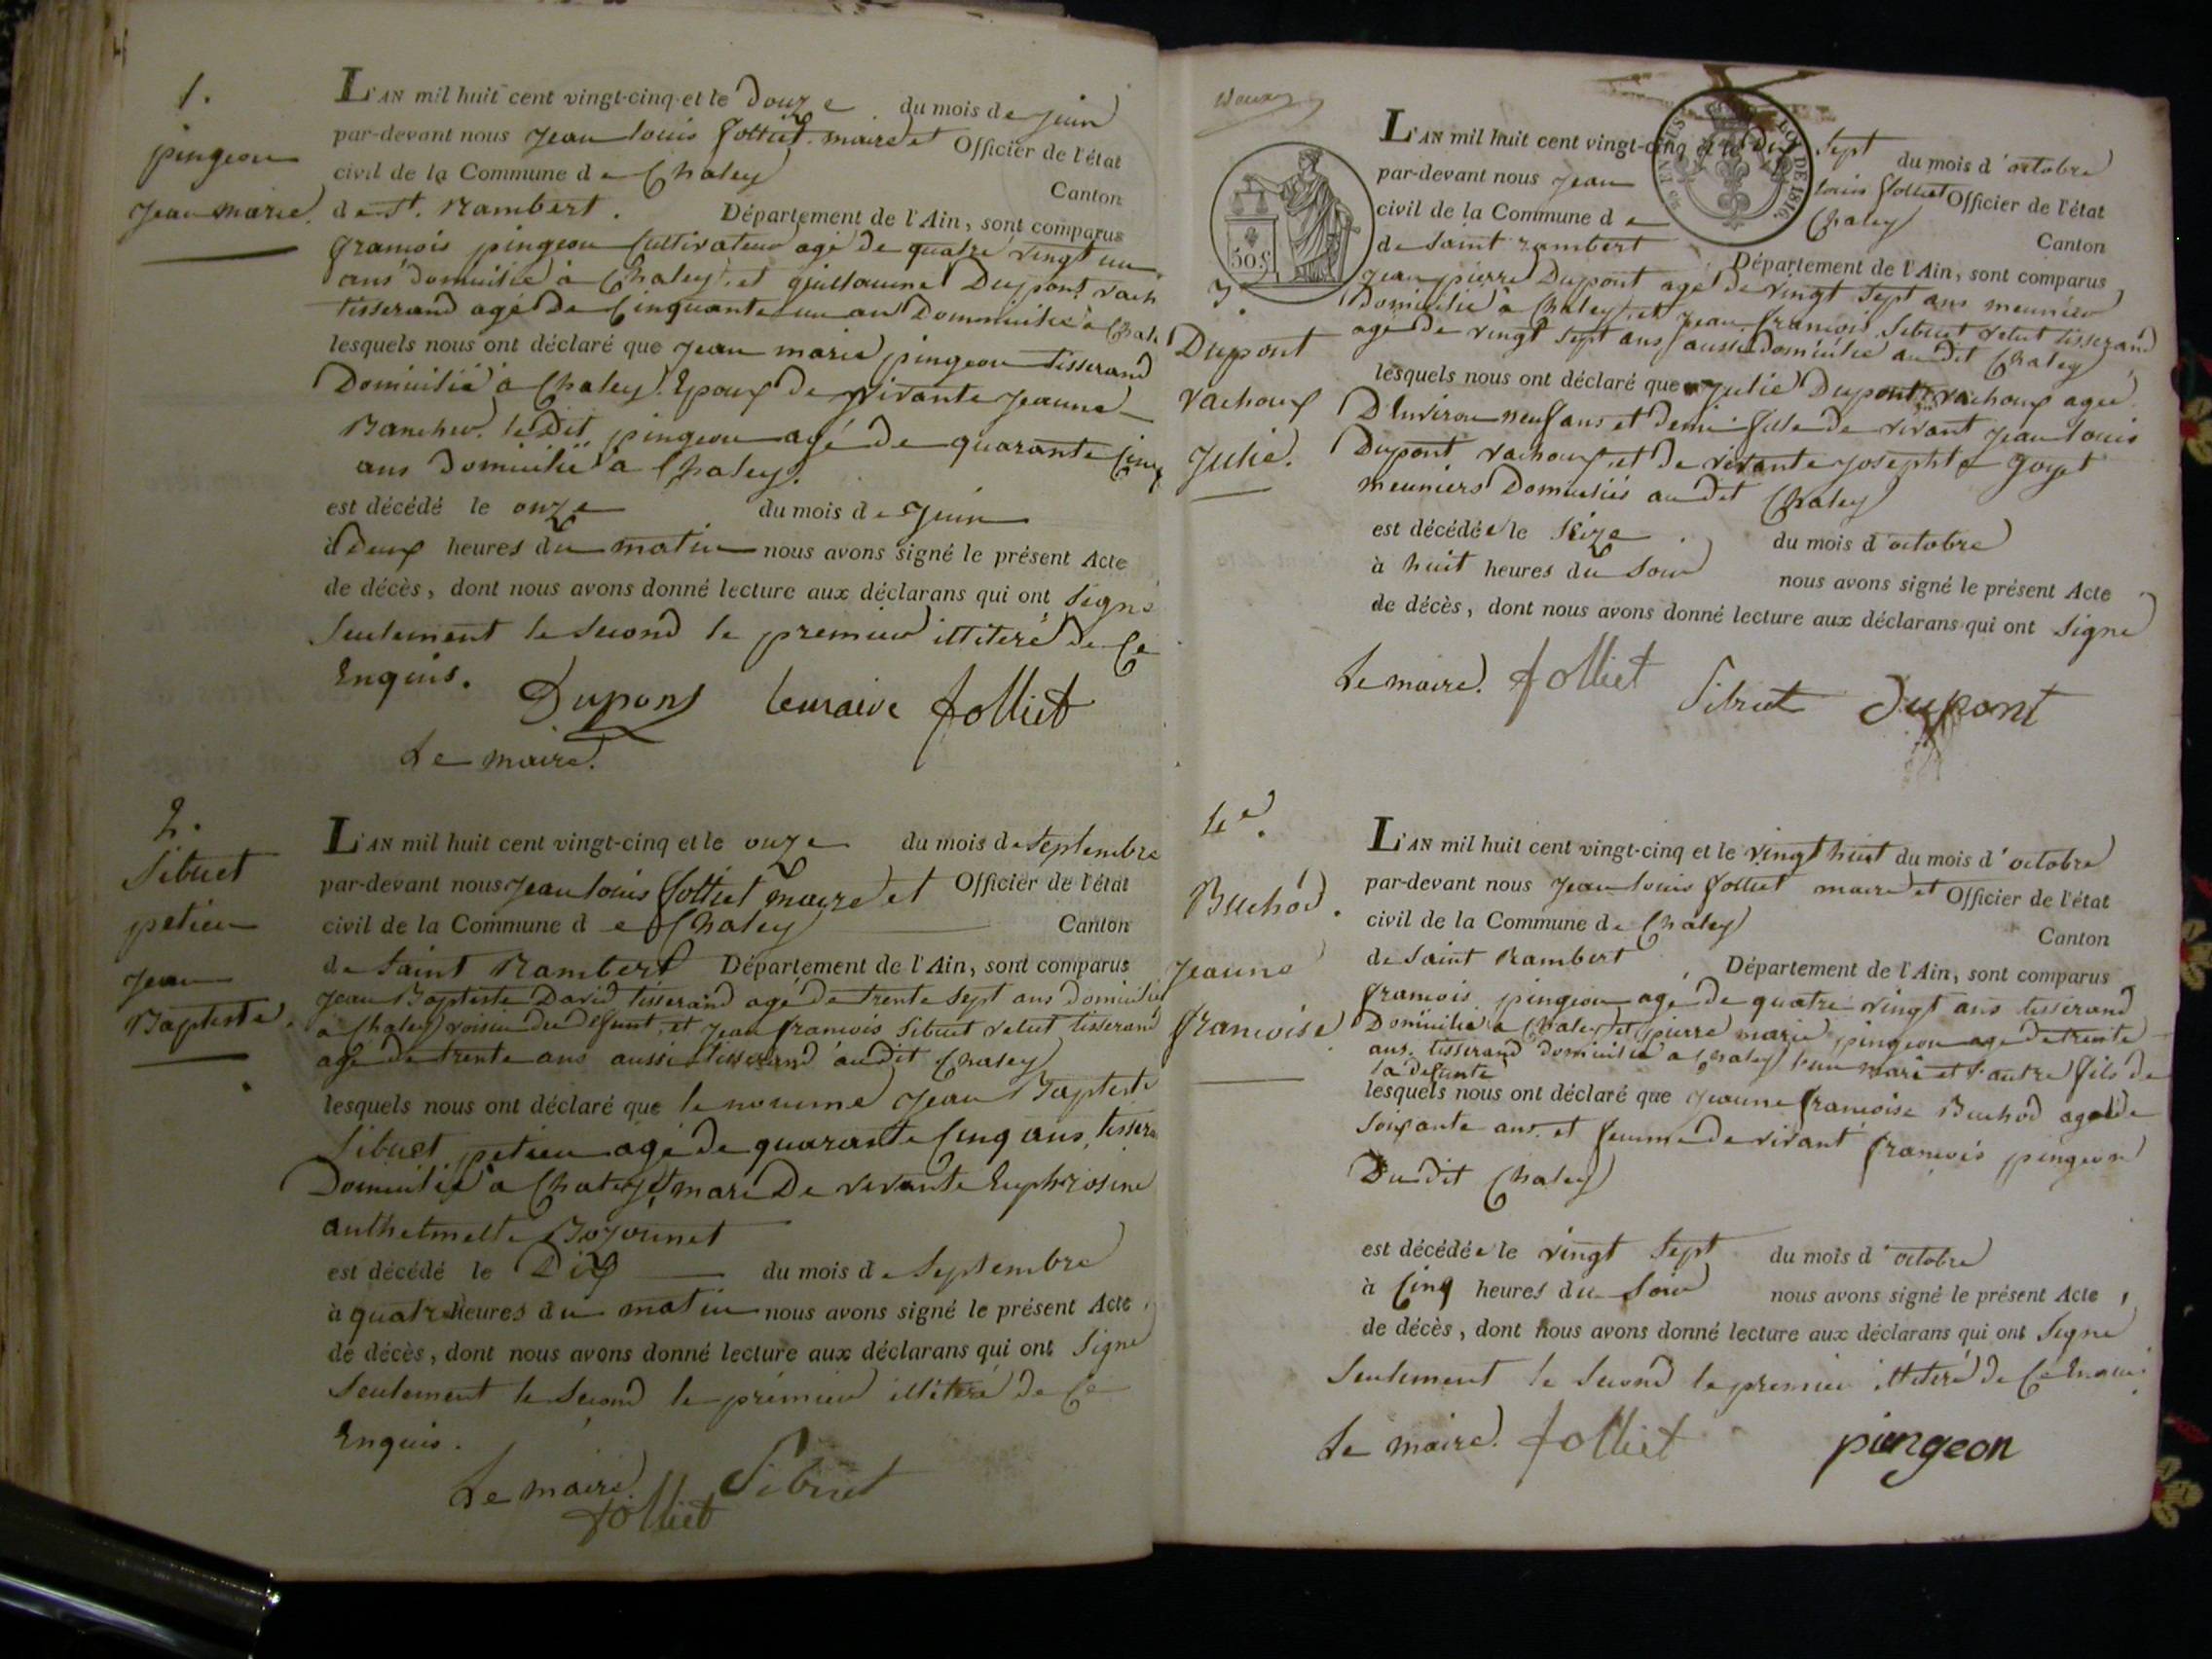 1.
pingeon
Jean marie.
L'AN mil huit cent vingt-cinq et le Douze du mois de juin
par-devant nous Jean louis folliet maire et Officier de l'état
civil de la Commune de Chaley Canton
de St. Rambert. Département de l'Ain, sont comparus
francois pingeon Cultivateur agé de quatre vingt un
ans domicilié à Chaley, et guillaume Dupont vach
tisserand agé de Cinquante un an Dommicilié à Chale
lesquels nous ont déclaré que Jean marie pingeon tisserand
Domicilié à Chaley. Epoux de vivante Jeanne
le Dit pingeon agé de quarante Cinq
ans domicilié à Chaley.
est décédé le onze du mois de Juin
à Deux heures du matin nous avons signé le présent Acte
de décès, dont nous avons donné lecture aux déclarans qui ont Signé
Seulement le Second le premier illiteré de Ce
Enquis.
Dupont folliet
Le maire.
2.
Sibuet
petieu
Jean
Baptiste.
L'AN mil huit cent vingt-cinq et le onze du mois de Septembre
par-devant nous Jean louis folliet maire et Officier de l'état
civil de la Commune de Chaley Canton
de Saint Rambert Département de l'Ain, sont comparus
Jean Baptiste David tisserand agé de trente Sept ans domicilié
à Chaley voisin du défunt, et Jean francois Sibuet velut tisserand
agé de trente ans aussi tisserand audit Chaley
lesquels nous ont déclaré que le nommé Jean Baptiste
Sibuet petieu agé de quarante Cinq ans, tissera
Domicilié à Chaley, mari De vivante Euphrosine
anthelmette Bozonnet
est décédé le Dix du mois de Septembre
à quatre heures du matin nous avons signé le présent Acte
de décès, dont nous avons donné lecture aux déclarans qui ont Signé
Seulement le Second le prémier illiteré de Ce
Enquis.
Le maire. Sibuet
folliet
50 c.
LOI DE 1816.
3.
Dupont
vachoux
Julie.
L'AN mil huit cent vingt-cinq et le dix Sept du mois d'octobre
par-devant nous Jean louis folliet Officier de l'état
civil de la Commune de Chaley Canton
de Saint rambert Département de l'Ain, sont comparus
Jean pierre Dupont agé de vingt Sept ans meunier
Domicilié à Chaley, et Jean francois Sibuet velut tisserand
agé de vingt Sept ans aussi domicilié audit Chaley
lesquels nous ont déclaré que Julie Dupont vachoux agée
D'Environ neuf ans et demi fille de vivant Jean louis
Dupont vachoux, et de vivante Josephte goyet
meuniers Domiciliés au dit Chaley
est décédée le Seize du mois d'octobre
à huit heures du Soir nous avons signé le présent Acte
de décès, dont nous avons donné lecture aux déclarans qui ont Signé
Le maire. folliet Sibuet Dupont
4e.
Buchod.
Jeanne
francoise.
L'AN mil huit cent vingt-cinq et le vingt huit du mois d'octobre
par-devant nous Jean louis folliet maire et Officier de l'état
civil de la Commune de Chaley Canton
de Saint Rambert Département de l'Ain, sont comparus
francois pingeon agé de quatre vingt ans tisserand
Domicilié à Chaley et pierre marie pingeon agé de trente
ans. tisserand domicilié à Chaley l'un mari et l'autre fils de
la défunte
lesquels nous ont déclaré que Jeanne francoise Buchod agée de
Soixante ans. et femme de vivant francois pingeon
Dudit Chaley
est décédée le vingt Sept du mois d'octobre
à Cinq heures du Soir nous avons signé le présent Acte,
de décès, dont nous avons donné lecture aux déclarans qui ont Signé
Seulement le Second le premier illiteré de Ce Enquis.
Le maire. folliet pingeon